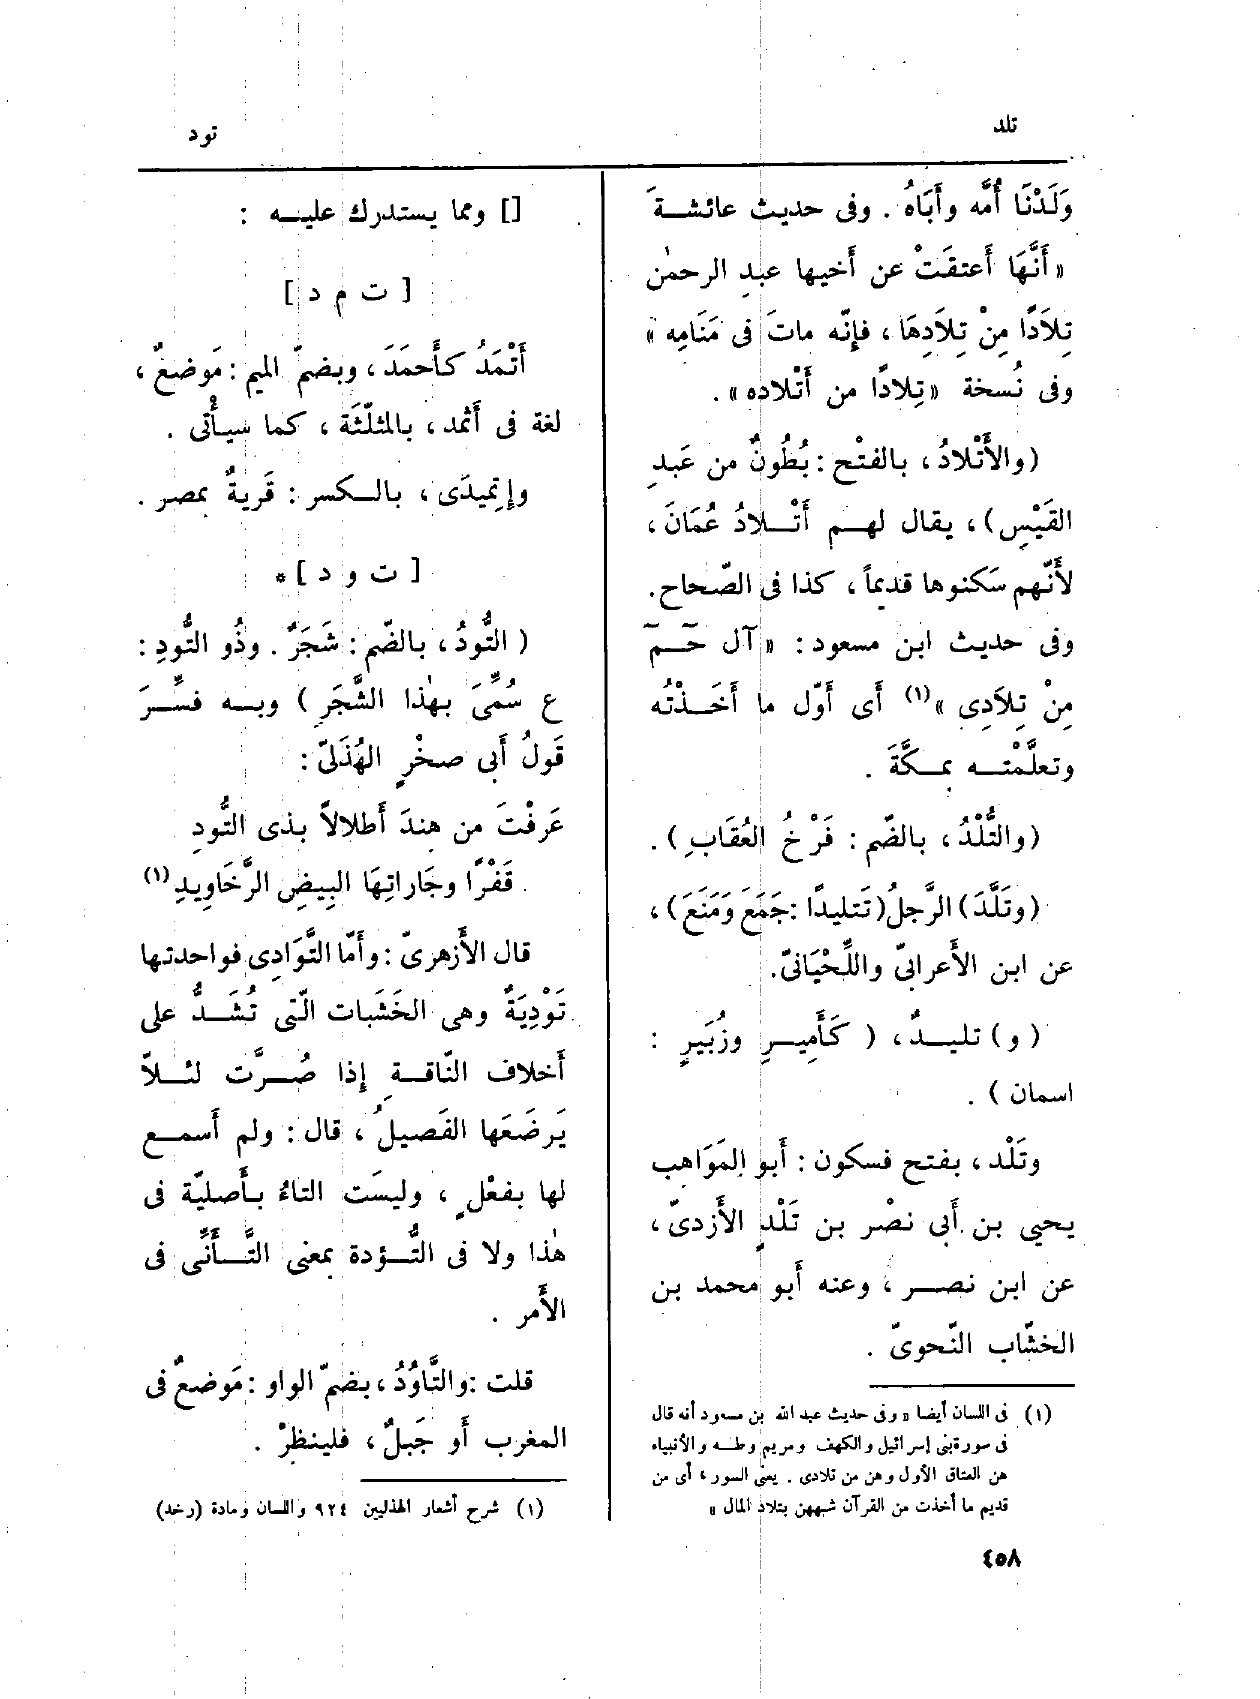 تلد
تود
وَلَدْنَا أُمَّه وأَبَاهُ . وفى حديث عائشةَ
« أَنَّهَا أَعتقَتْ عن أَخيها عبدِ الرحمٰن
تِلاَدًا مِنْ تِلاَدِهَا ، فإِنّه ماتَ فى مَنَامِه »
وفى نُسخة « تِلادًا من أَتْلاده » .
( والأَتْلادُ ، بالفتْح : بُطُونٌ من عَبدِ
القَيْسِ ) ، يقال لهم أَتْلادُ عُمَانَ ،
لأَنّهم سَكنوها قديماً ، كذا فى الصّحاح .
وفى حديث ابن مسعود : « آلَ حَم
مِنْ تِلاَدِى » (١) أى أَوّل ما أَخَذْتُه
وتعلَّمْته بمكَّةَ .
( والتُّلْدُ ، بالضّم : فَرْخُ العُقَابِ ) .
( وتَلَّدَ ) الرَّجلُ ( تَتليدًا : جَمَعَ وَمَنَعَ ) ،
عن ابن الأَعرابىّ واللِّحْيَانىّ .
( و ) تليدٌ ، ( كَأَمِيرٍ وزُبَيرٍ :
اسمان ) .
وتَلْد ، بفتح فسكون : أَبو المَوَاهب
يحيى بن أَبى نصْر بن تَلْدٍ الأَزدىّ ،
عن ابن نصر ، وعنه أَبو محمد بن
الخشّاب النّحوىّ .
(١) فى اللسان أيضا « وفى حديث عبد الله بن مسعود أنه قال
فى سورة بنى إسرائيل والكهف ومريم وطه والأنبياء
هن العتاق الأول وهن من تلادى . يعنى السور ، أى من
قديم ما أخذت من القرآن شبههن بتلاد المال »
[] ومما يستدرك عليه :
[ ت م د ]
أَتْمَدُ كأَحمَدَ ، وبضمّ الميم : مَوضعٌ ،
لغة فى أَثمد ، بالمثلّثَة ، كما سيأْتى .
وإِتمِيدَى ، بالكسر : قَريةٌ بمصر .
[ ت و د ] *
( التُّودُ ، بالضّم : شَجَرٌ . وذُو التُّودِ :
ع سُمِّىَ بهٰذا الشَّجَرِ ) وبه فسِّرَ
قَولُ أَبى صخْرٍ الهُذَلىّ :
عَرفْتَ من هِندَ أَطلالاً بذى التُّودِ
قَفْرًا وجَاراتِهَا البِيضِ الرَّخَاوِيدِ (١)
قال الأَزهرىّ : وأَمّا التَّوَادِى فواحدتها
تَوْدِيَةٌ وهى الخَشَبات الّتى تُشَدُّ على
أَخلاف النّاقةِ إِذا صُرَّت لئلاّ
يَرضَعَها الفَصيلُ ، قال : ولم أَسمع
لها بفعْلٍ ، وليسَت التاءُ بأَصليّة فى
هٰذا ولا فى التُّؤدة بمعنى التَّأَنِّى فى
الأَمر .
قلت : والتَّاوُدُ ، بضمّ الواو : مَوضعٌ فى
المغرب أَو جَبلٌ ، فلينظرْ .
(١) شرح أشعار الهذليين ٩٢٤ واللسان ومادة (رخد)
٤٥٨